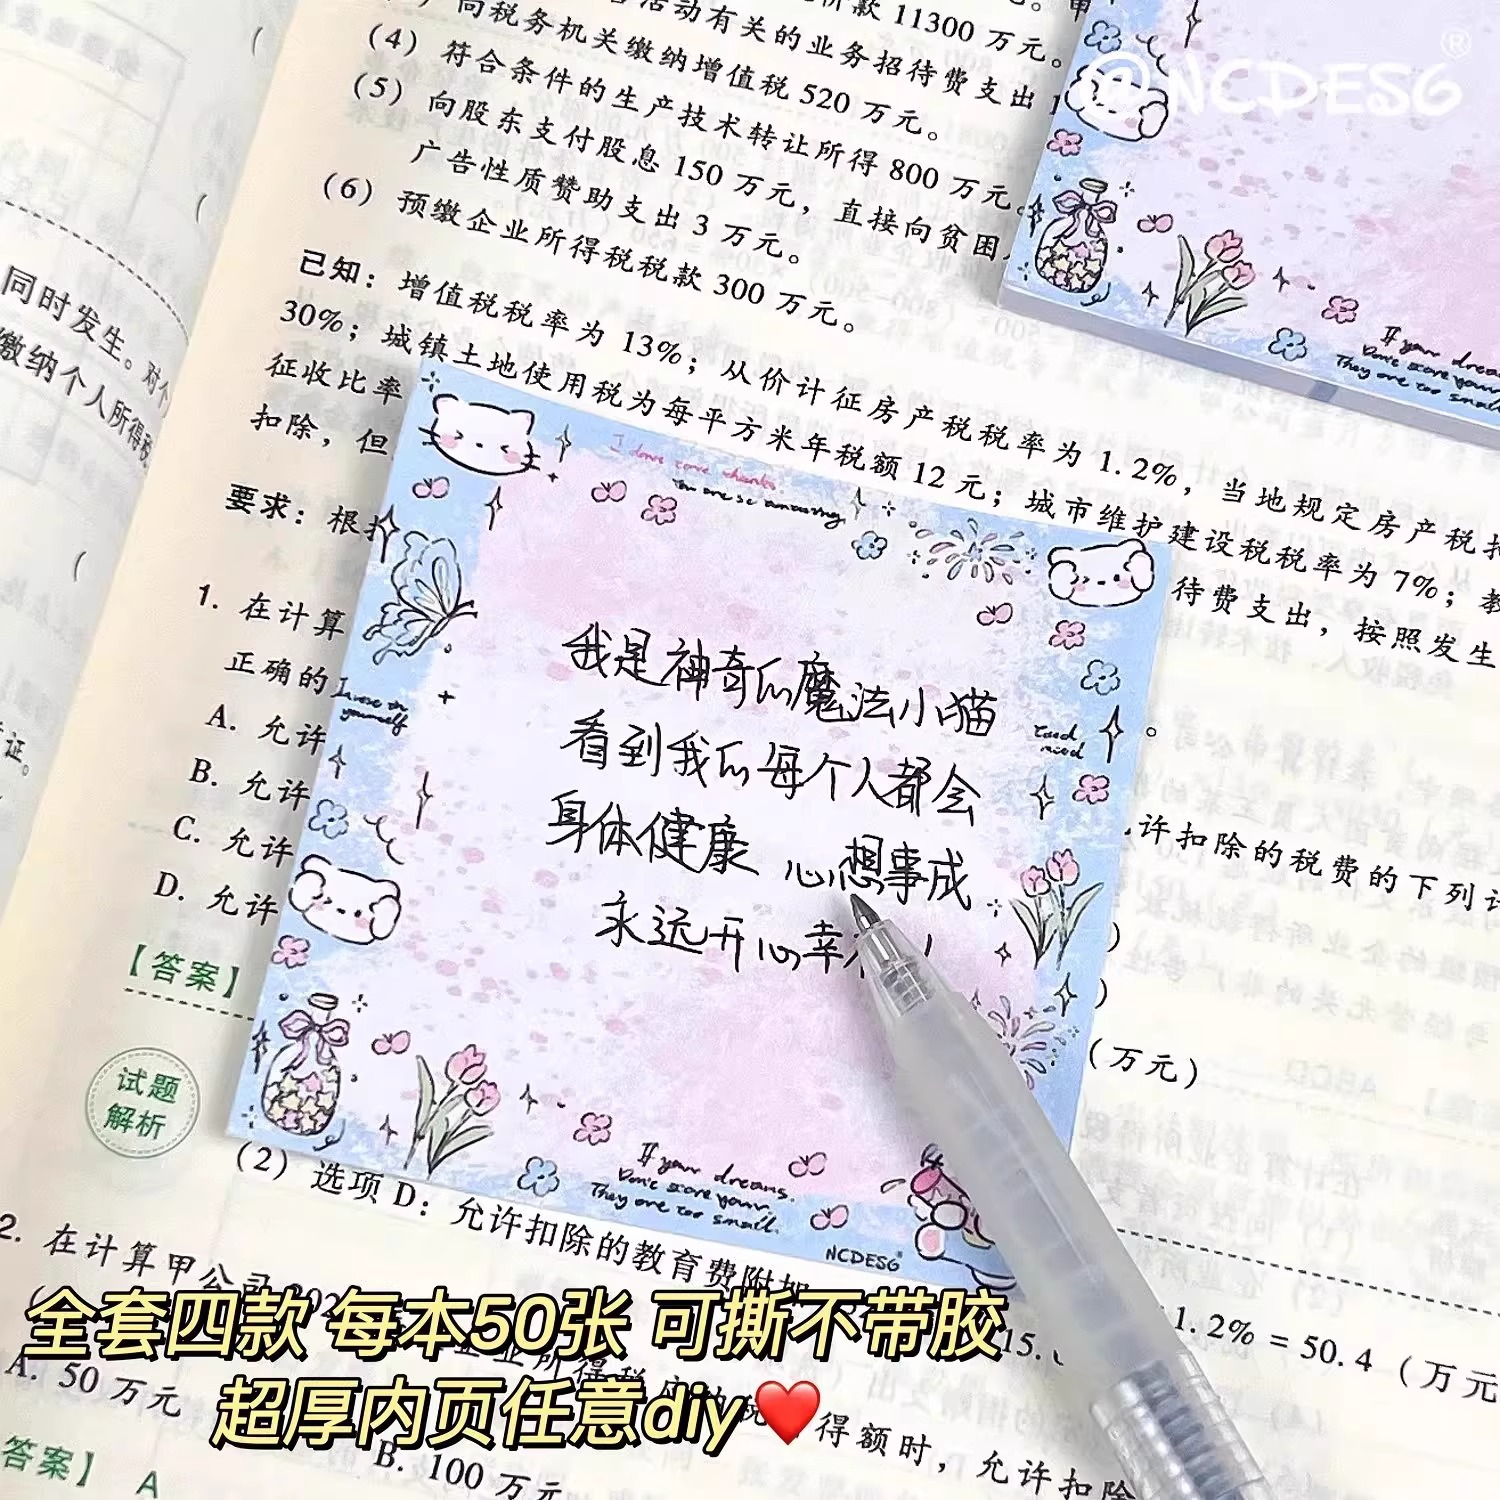 价款 11300 万元。
活动有关的业务招待费支出
向税务机关缴纳增值税 520 万元。
(4) 符合条件的生产技术转让所得 800 万元。
(5) 向股东支付股息 150 万元，直接向贫困
广告性质赞助支出 3 万元。
(6) 预缴企业所得税税款 300 万元。
已知：增值税税率为 13%；从价计征房产税税率为 1.2%，当地规定房产税扣
30%；城镇土地使用税为每平方米年税额 12 元；城市维护建设税税率为 7%；教
征收比率
待费支出，按照发生
扣除，但
要求：根据
同时发生。对个
缴纳个人所得税
证。
1. 在计算
正确的
。
A. 允许
B. 允许
C. 允许
D. 允许
许扣除的税费的下列计
【答案】
试题
解析
(万元)
(2) 选项 D：允许扣除的教育费附加
1.2% = 50.4 (万元
2. 在计算甲公司
业所得税
得额时，允许扣除
A. 50 万元
B. 100 万元
答案】 A
@NCDESG®
If your dreams
Don't scare your
They are too small
You are so amazing
我是神奇的魔法小猫
看到我的每个人都会
身体健康 心想事成
永远开心幸
Invest in
yourself
Good
mood
If your dreams.
Don't scare your.
They are too small.
NCDESG®
全套四款 每本50张 可撕不带胶
超厚内页任意diy❤️